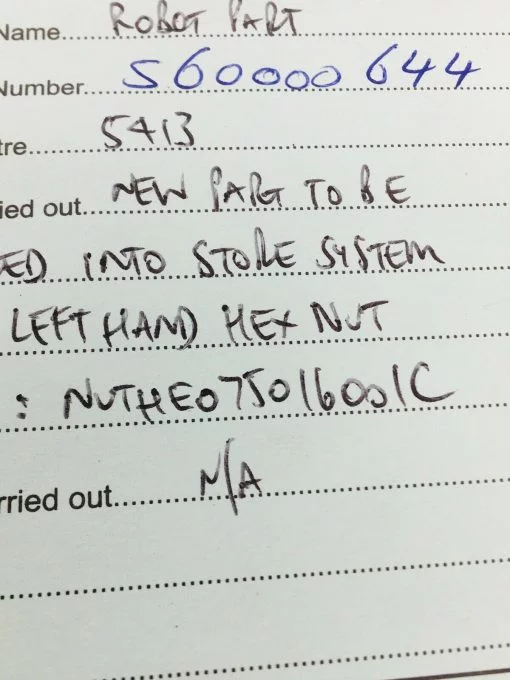 Name.....ROBOT PART
Number.....560000644
tre.....5413
ied out.....NEW PART TO BE
ED INTO STORE SYSTEM
LEFT HAND HEX NUT
: NUTHE075016001C
rried out.....N/A